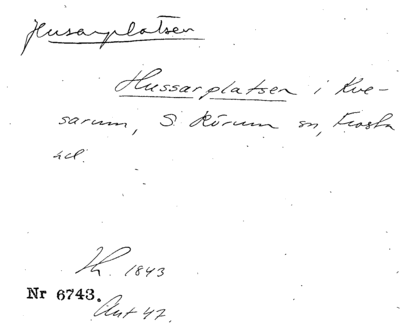 Husarplatsen
Hussarplatsen i Kve-
sarum, S. Rörum sn, Frosta
hd.
Th. 1843
Nr 6743.
Ant 47.